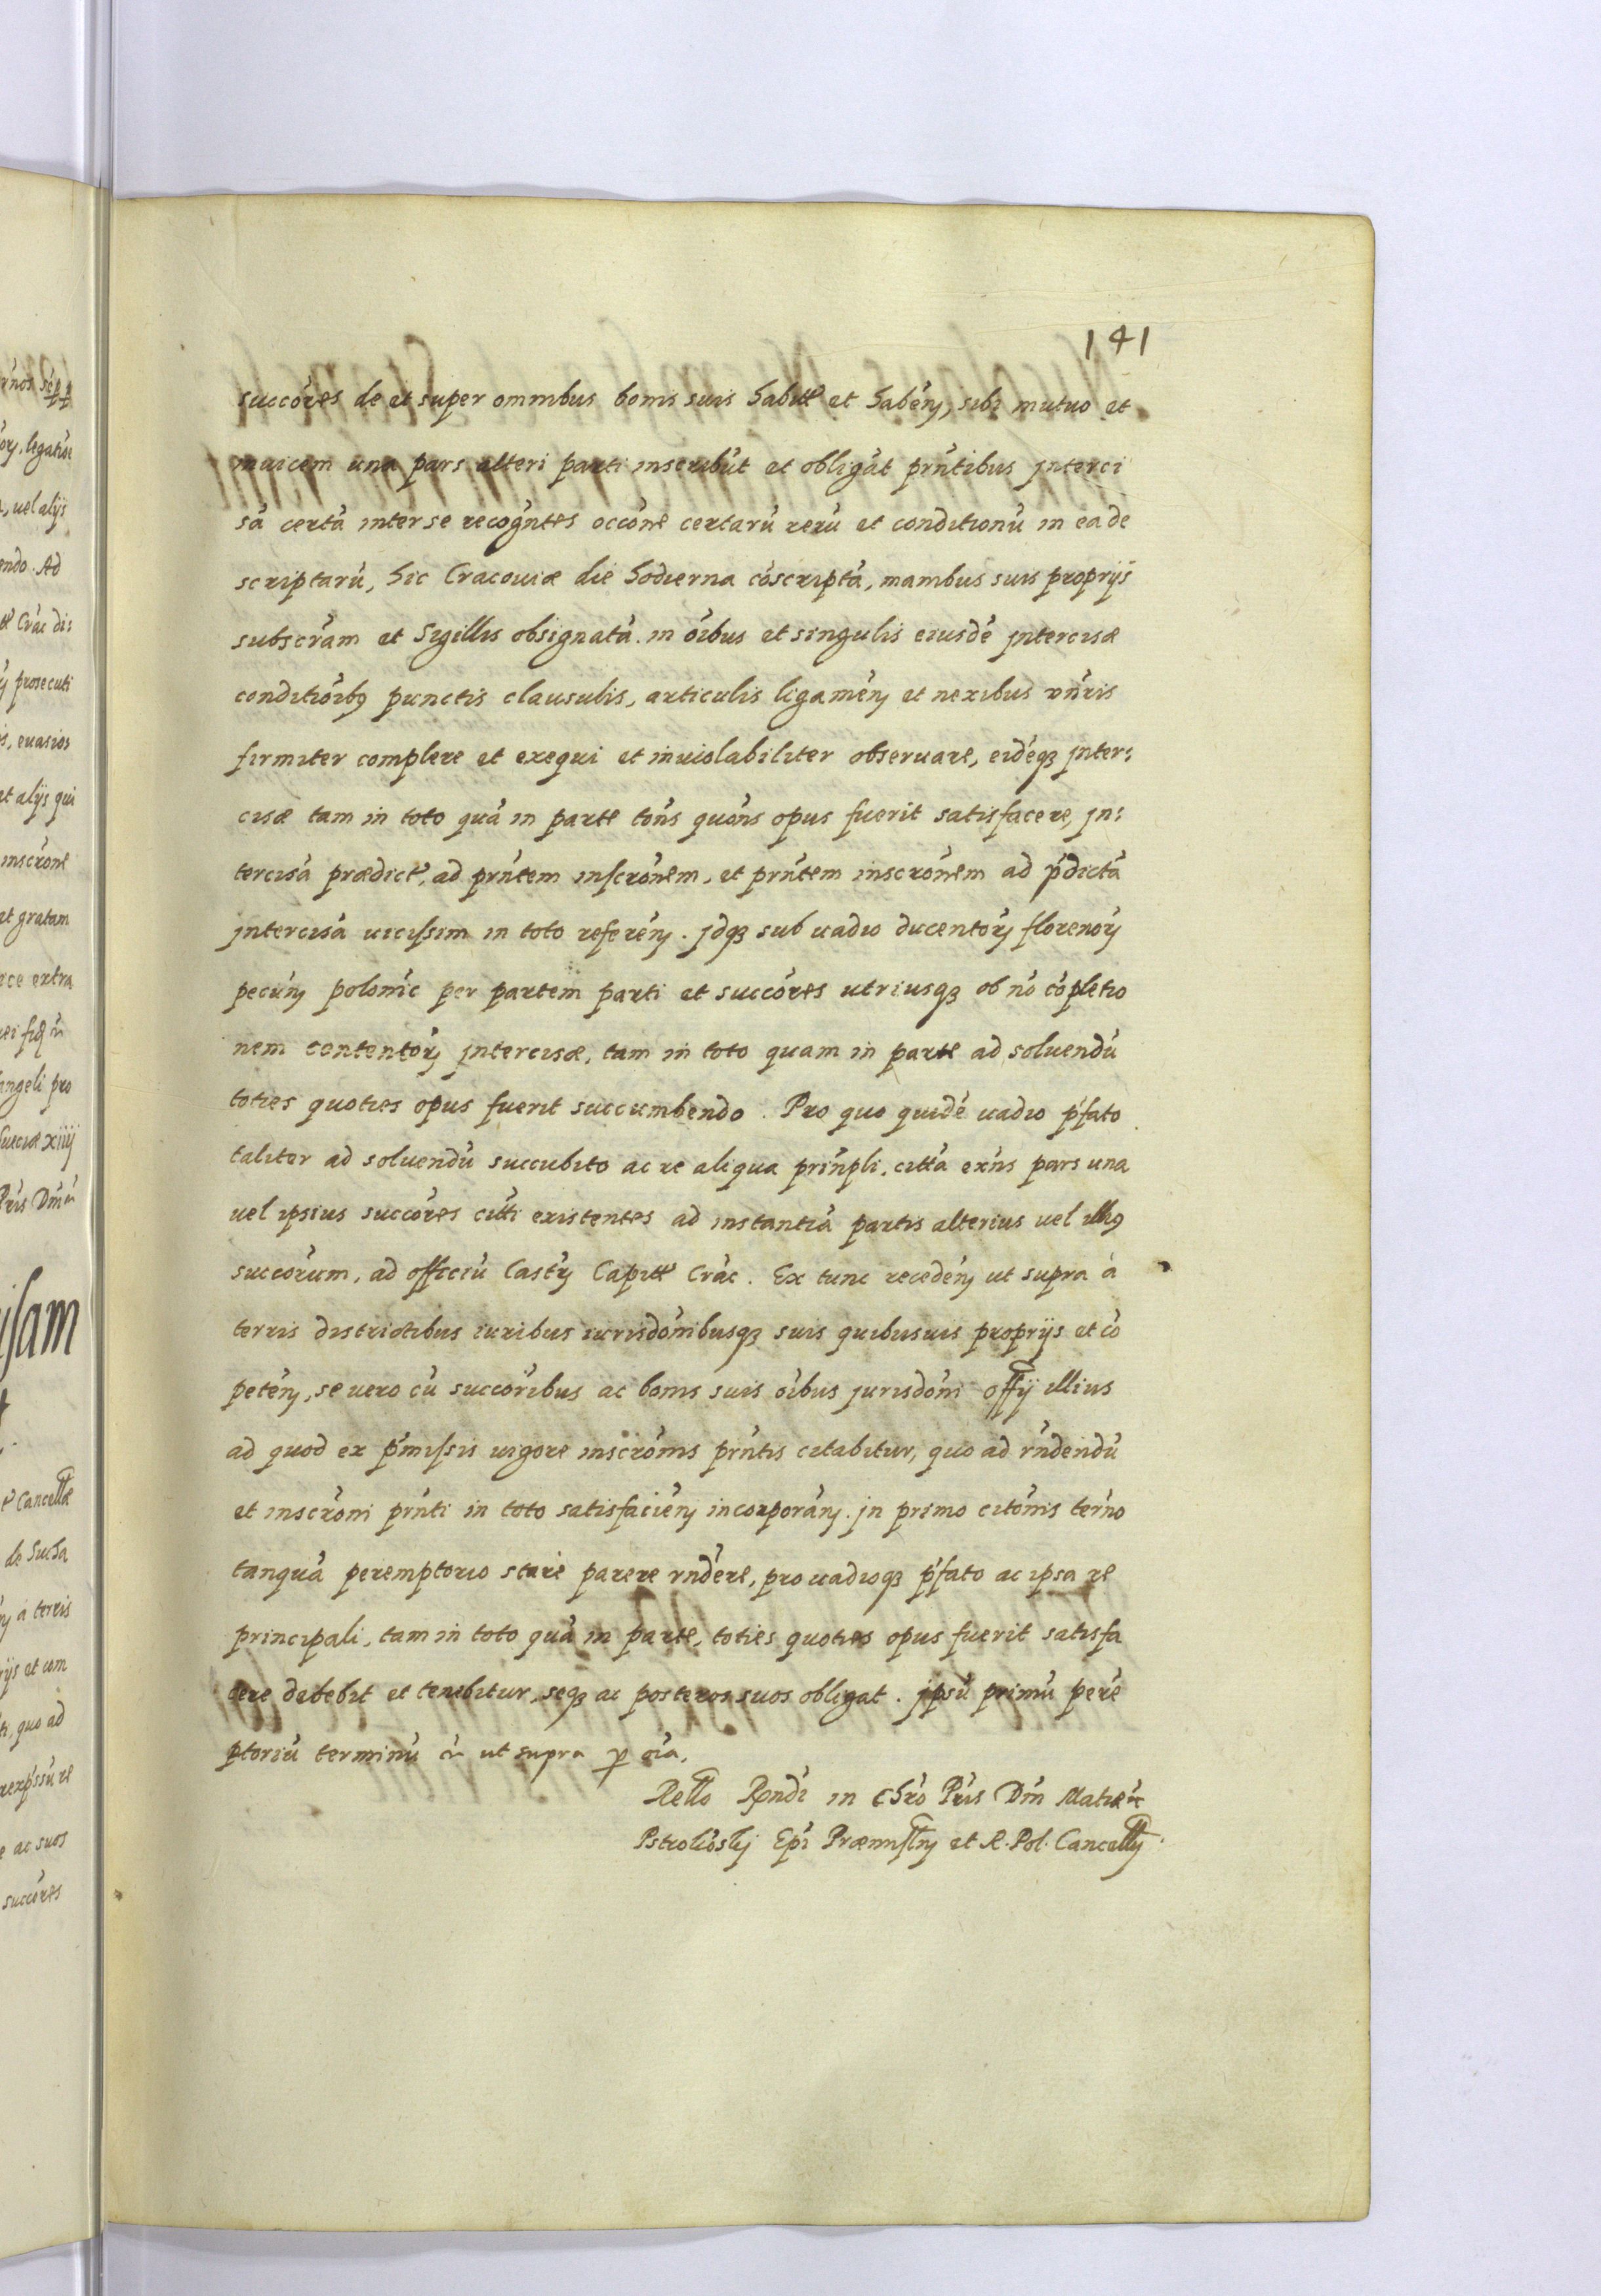 141
succóres de et super omnibus bonis suis habitt et habeń, sibi mutuo et
inuicem una pars alteri parti inscribũt et obligãt prñtibus jnterci
sã certã inter se recogñtes occóne certarũ rerũ et conditionũ in ea de
scriptarũ, hic Cracouiæ die hodierna cõscriptã, manibus suis proprijs
subscr̃am et Sigillis obsignatã. in õibus et singulis eiusdẽ jntercisæ
conditiõibꝯ punctis clausulis, articulis ligameń et nexibus vñris
firmiter complere et exequi et inuiolabiliter obseruare, eidẽqꝫ jnter:
cisæ tam in toto quã in parte tõns quõns opus fuerit satisfacere, jn:
tercisã prædict, ad prñtem inscrõnem, et prñtem inscrõnem ad p̃dictã
jntercisã uicissim in toto refereń. jdqꝫ sub uadio ducentoꝝ florenoꝝ
pecuń polonic per partem parti et succóres utriusqꝫ ob nõ cõpletio
nem contentoꝝ jntercisæ, tam in toto quam in parte ad soluendũ
toties quoties opus fuerit succumbendo. Pro quo quidẽ uadio p̃fato
taliter ad soluendũ succubito ac re aliqua prinp̃li, citta exñs pars una
uel ipsius succóres citti existentes ad instantiã partis alterius uel illiꝯ
succorum, ad officiũ Castꝝ Capitt Crac. Ex tunc recedeń ut supra á
terris districtibus iuribus iurisdõnibusqꝫ suis quibusuis proprijs et cõ
peteń, se uero cũ succoribus ac bonis suis õibus jurisdõni offij illius
ad quod ex p̃missis uigore inscrõnis prñtis citabitur, quo ad rñdendũ
et inscrõni prñti in toto satisfacień incorporań. jn primo citõnis terño
tanquã peremptorio stare parere rñdere, pro uadioqꝫ p̃fato ac ipsa re
principali, tam in toto quã in parte, toties quoties opus fuerit satisfa
cere debebit et tenebitur, seqꝫ ac posteros suos obligat. jpsũ primũ perẽ
ptoriũ terminũ ut supra ꝑ õia.
Rello Rṇdi in Chro Pris Dñi
Pstrokoskj Epi Præmisłń et R. Pol. Cancellꝝ.